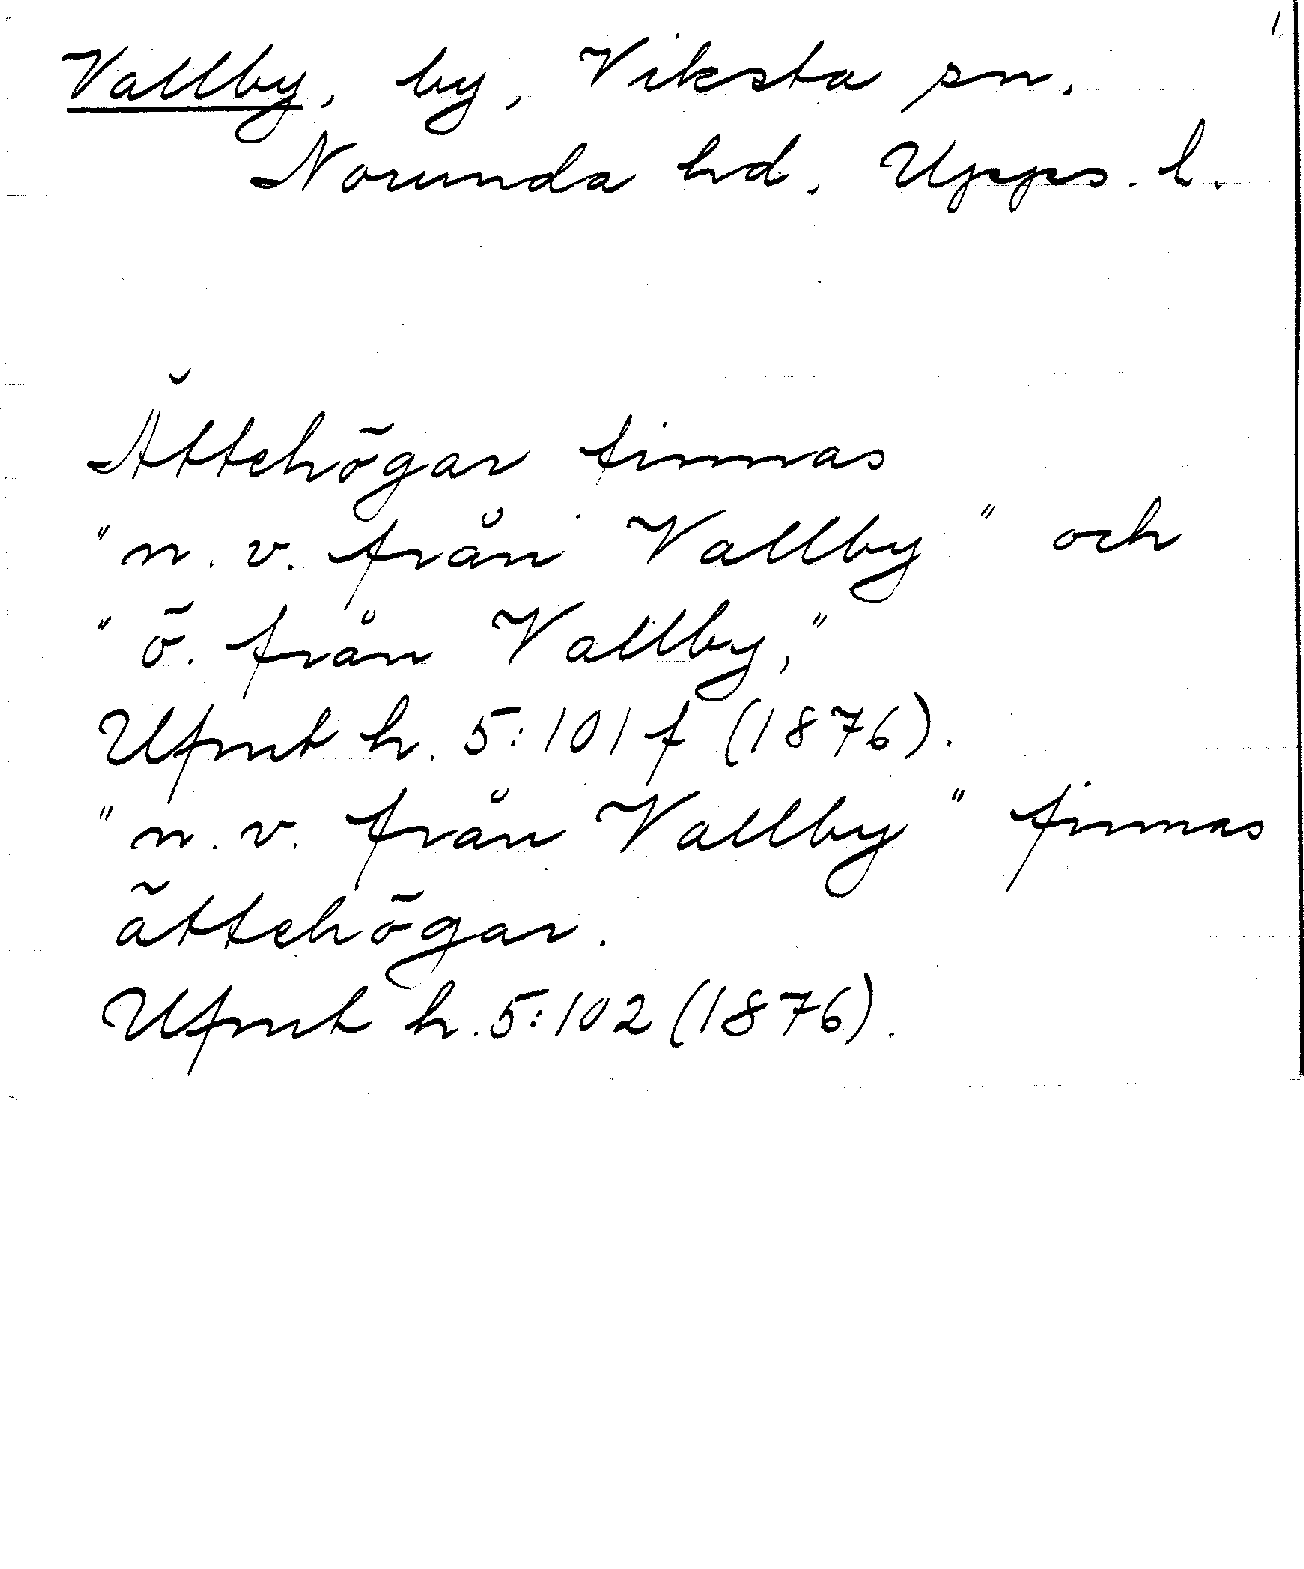 1
Vallby, by, Viksta sn.
Norunda hd, Upps. l.
Ättehögar finnas
"n. v. från Vallby" och
"ö. från Vallby,"
Ufmt h. 5:101 f (1876).
"n. v. från Vallby" finnas
ättehögar.
Ufmt h. 5:102 (1876).